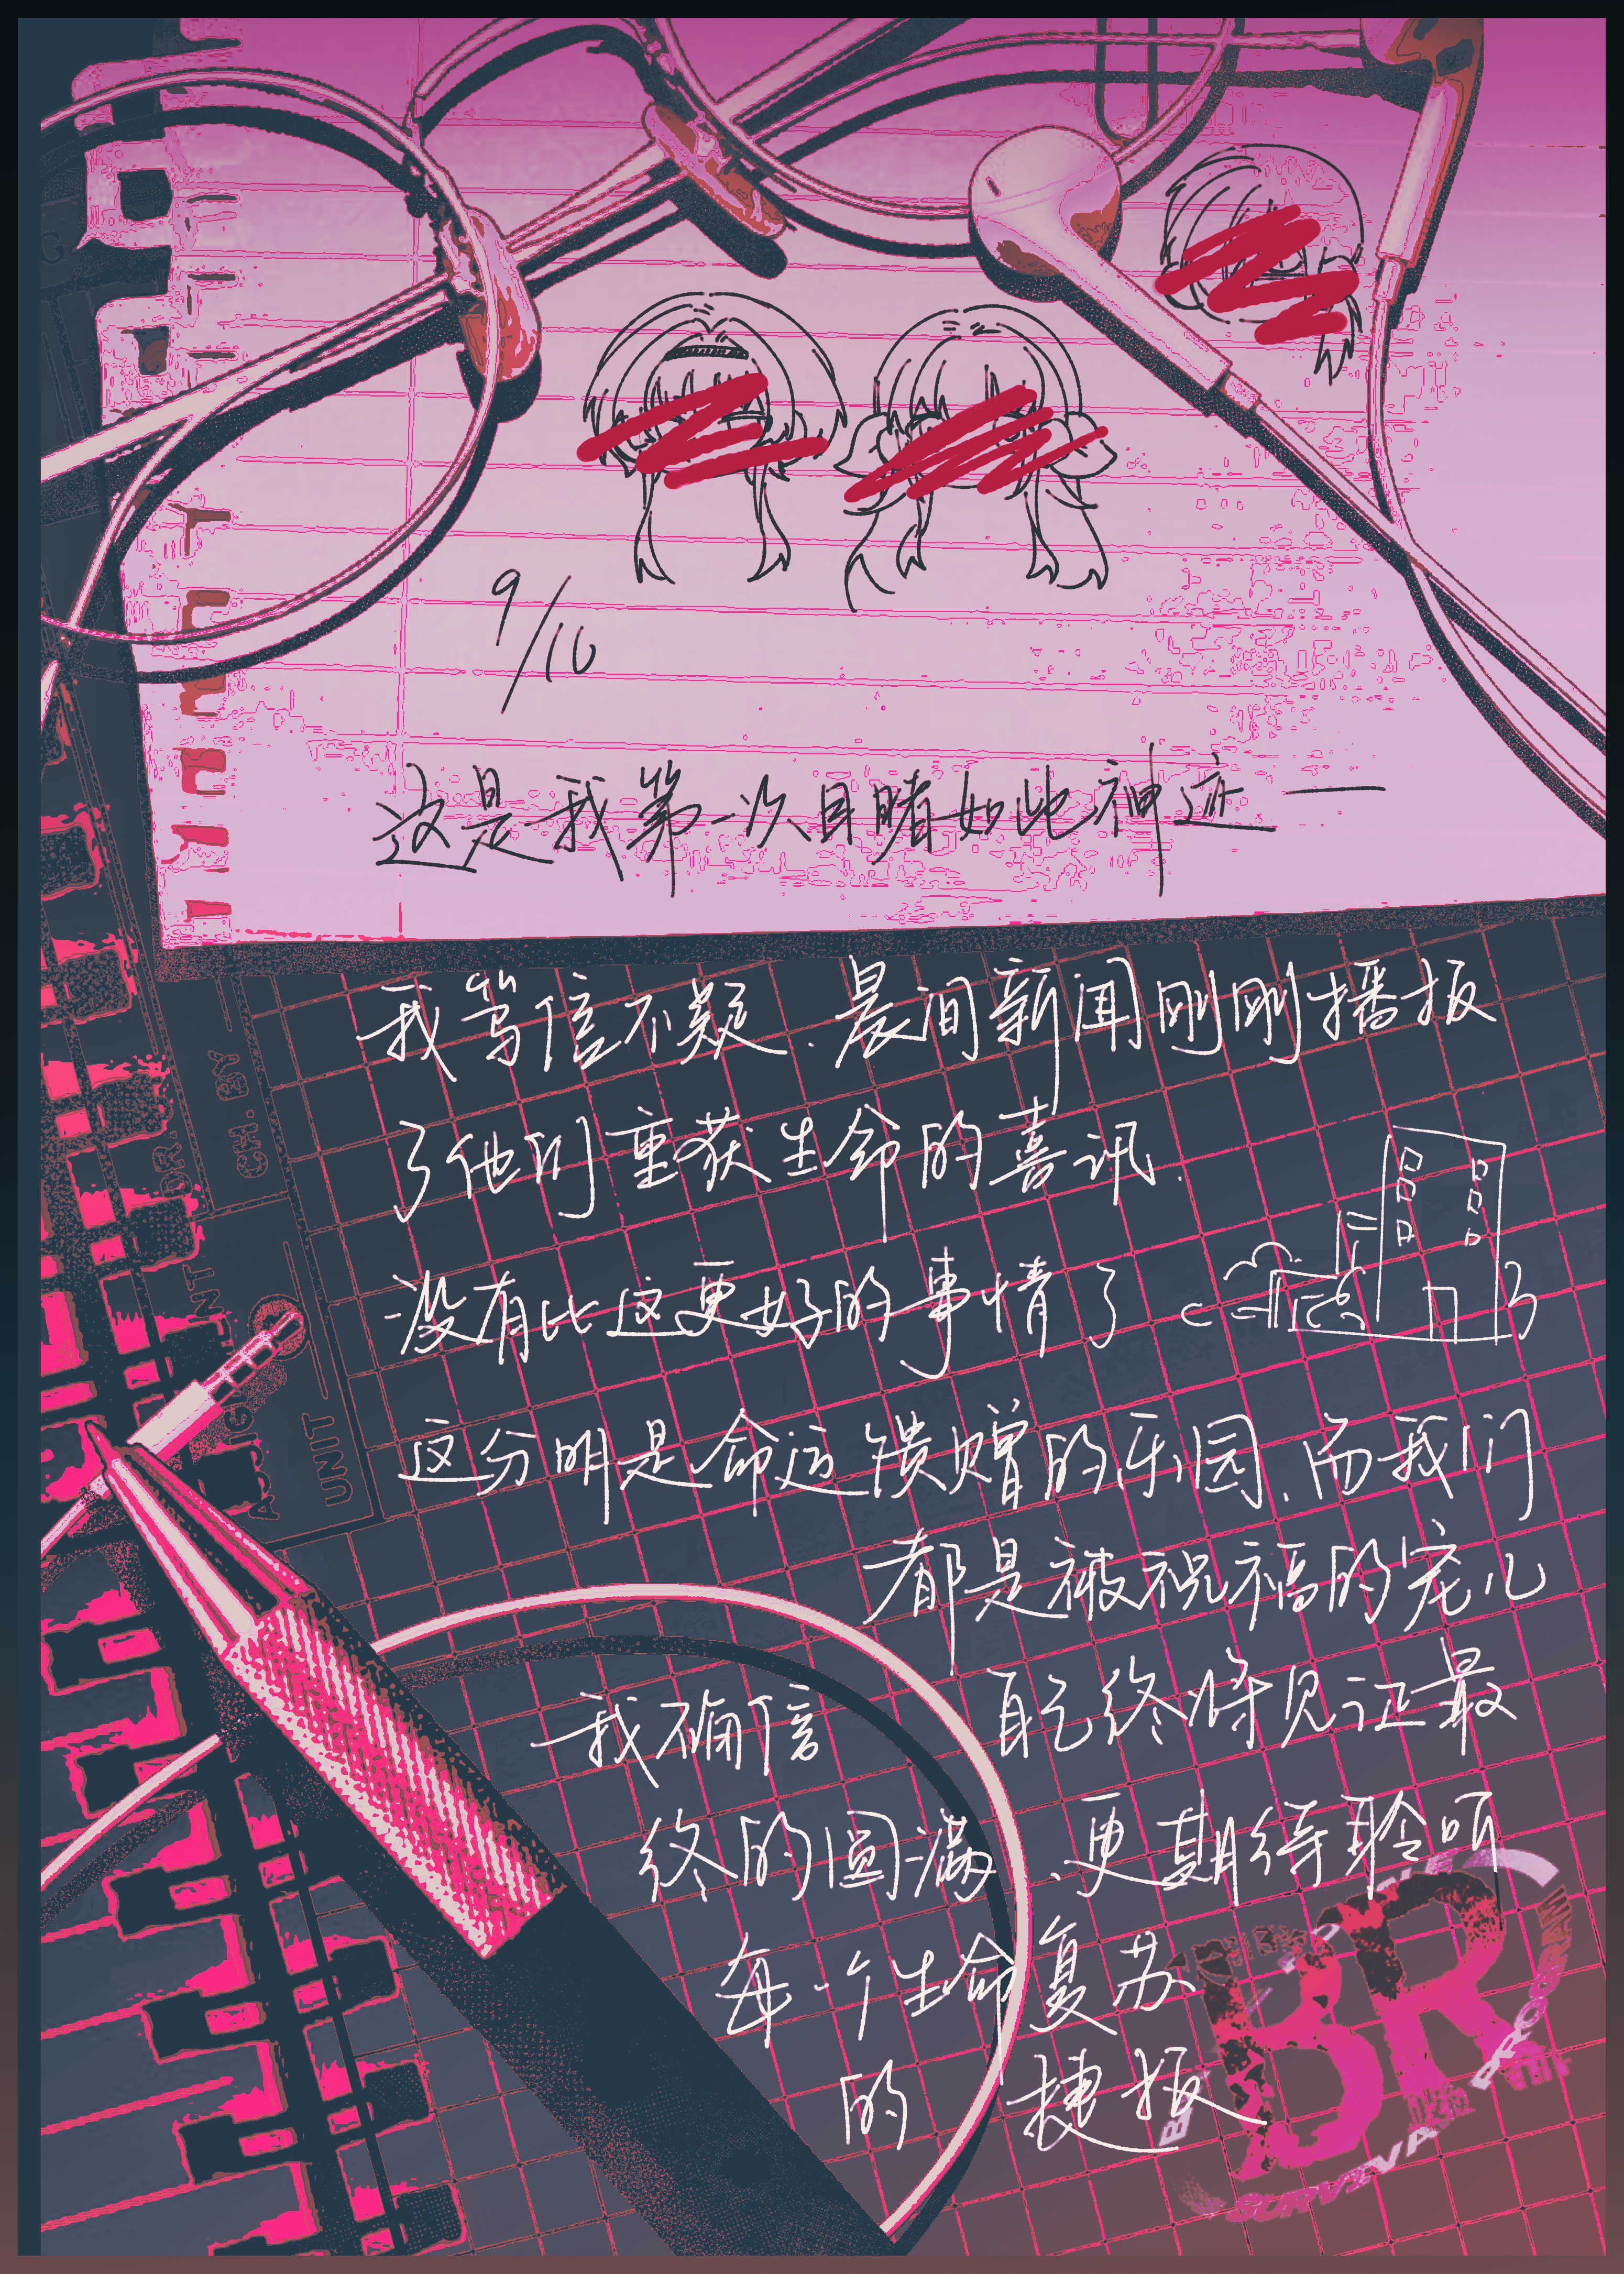 9/10
这是我第一次目睹如此神迹——
我笃信不疑.晨间新闻刚刚播报
了他们重获生命的喜讯.
没有比这更好的事情了
这分明是命运馈赠的乐园.而我们
都是被祝福的宠儿
我确信 自己终将见证最
终的圆满.更期待聆听
每一个生命复苏
的 捷报
CH. BY
DR.
UNIT
BR
SURVIVAL PROGRAM